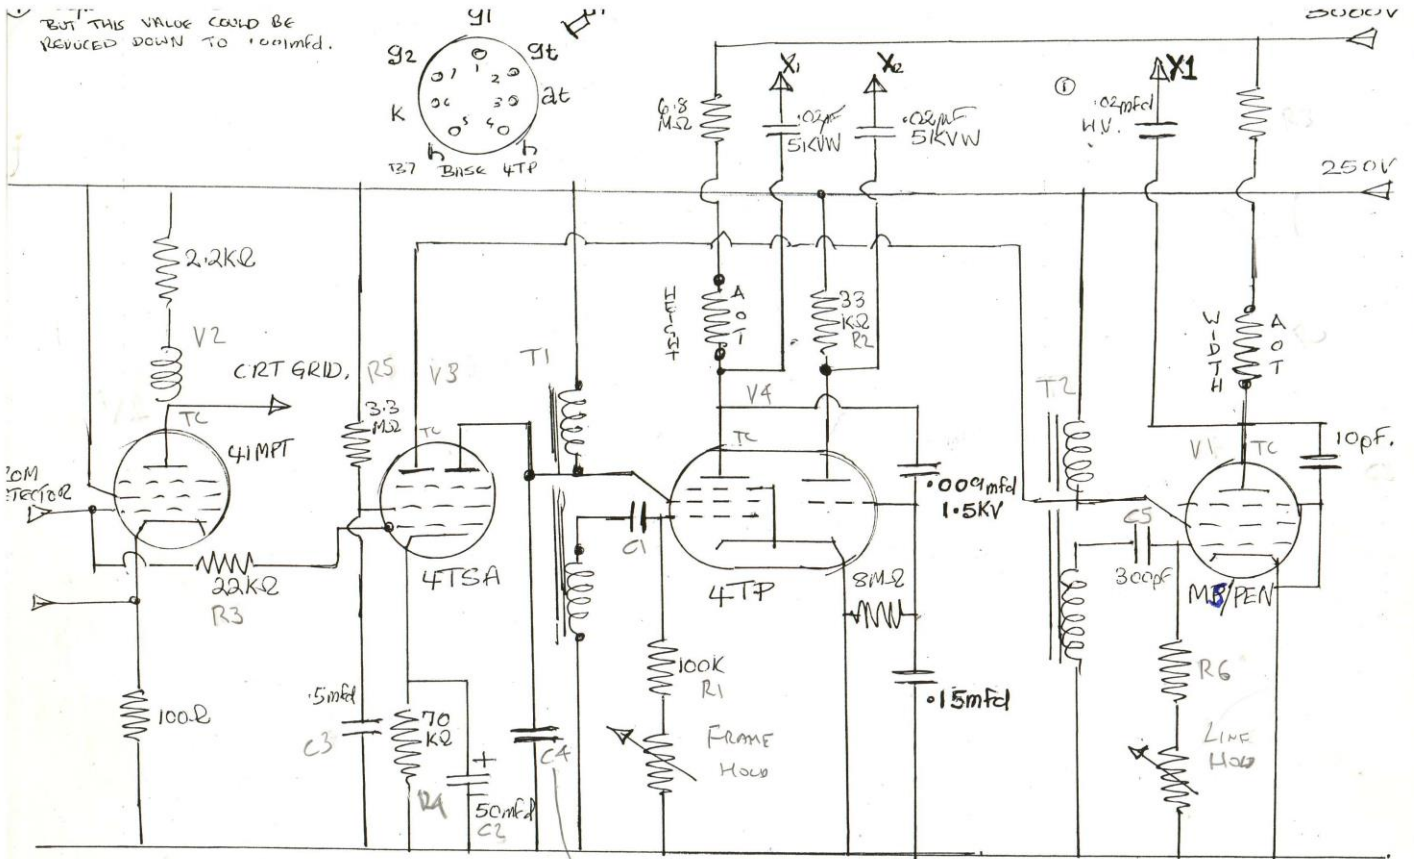 BUT THIS VALUE COULD BE
REDUCED DOWN TO .001mfd.
g1
g2
gt
k
at
h
h
1
2
3
4
5
6
7
B7 BASE 4TP
5000V
250V
6.8
MΩ
X1
.02µF
5KVW
X2
.02µF
5KVW
1
X1
.02mfd
H.V.
R3
2.2KΩ
V2
CRT GRID.
TC
41MPT
22KΩ
R3
100Ω
R5
3.3
MΩ
V3
TC
4TSA
.5mfd
C3
70
KΩ
R4
+
50mfd
C2
T1
C4
C1
HEIGHT
AOT
33
KΩ
R2
V4
TC
4TP
.009mfd
1.5KV
8MΩ
.15mfd
100K
R1
FRAME
HOLD
T2
WIDTH
AOT
V1
TC
10pF.
C5
300pF
MS/PEN
R6
LINE
HOLD